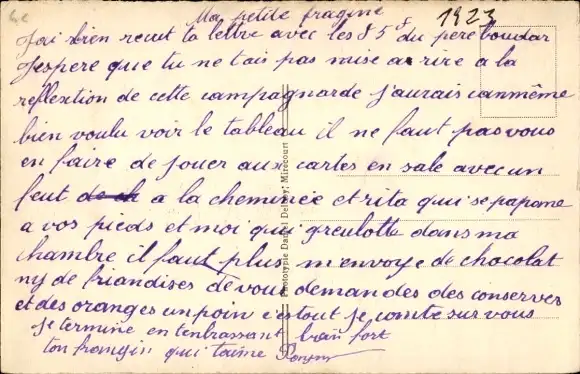 1923
Ma petite fragine
J'ai bien recut ta lettre avec les 85f du pere boudar
J'espere que tu ne tais pas mise a rire a la
reflextion de cette campagnarde j'aurais canmême
bien voulu voir le tableau il ne faut pas vous
en faire de jouer aux cartes en sale avec un
feut a la cheminée et rita qui se papome
a vos pieds et moi qui greulotte dans ma
chambre il faut plus m'envoye de chocolat
ny de friandises de vous demandes des conserves
et des oranges un poin c'est tout je comte sur vous
Je termine en tenbrassant bien fort
ton frangin qui t'aime
Phototypie Daniel Delbay, Mirecourt